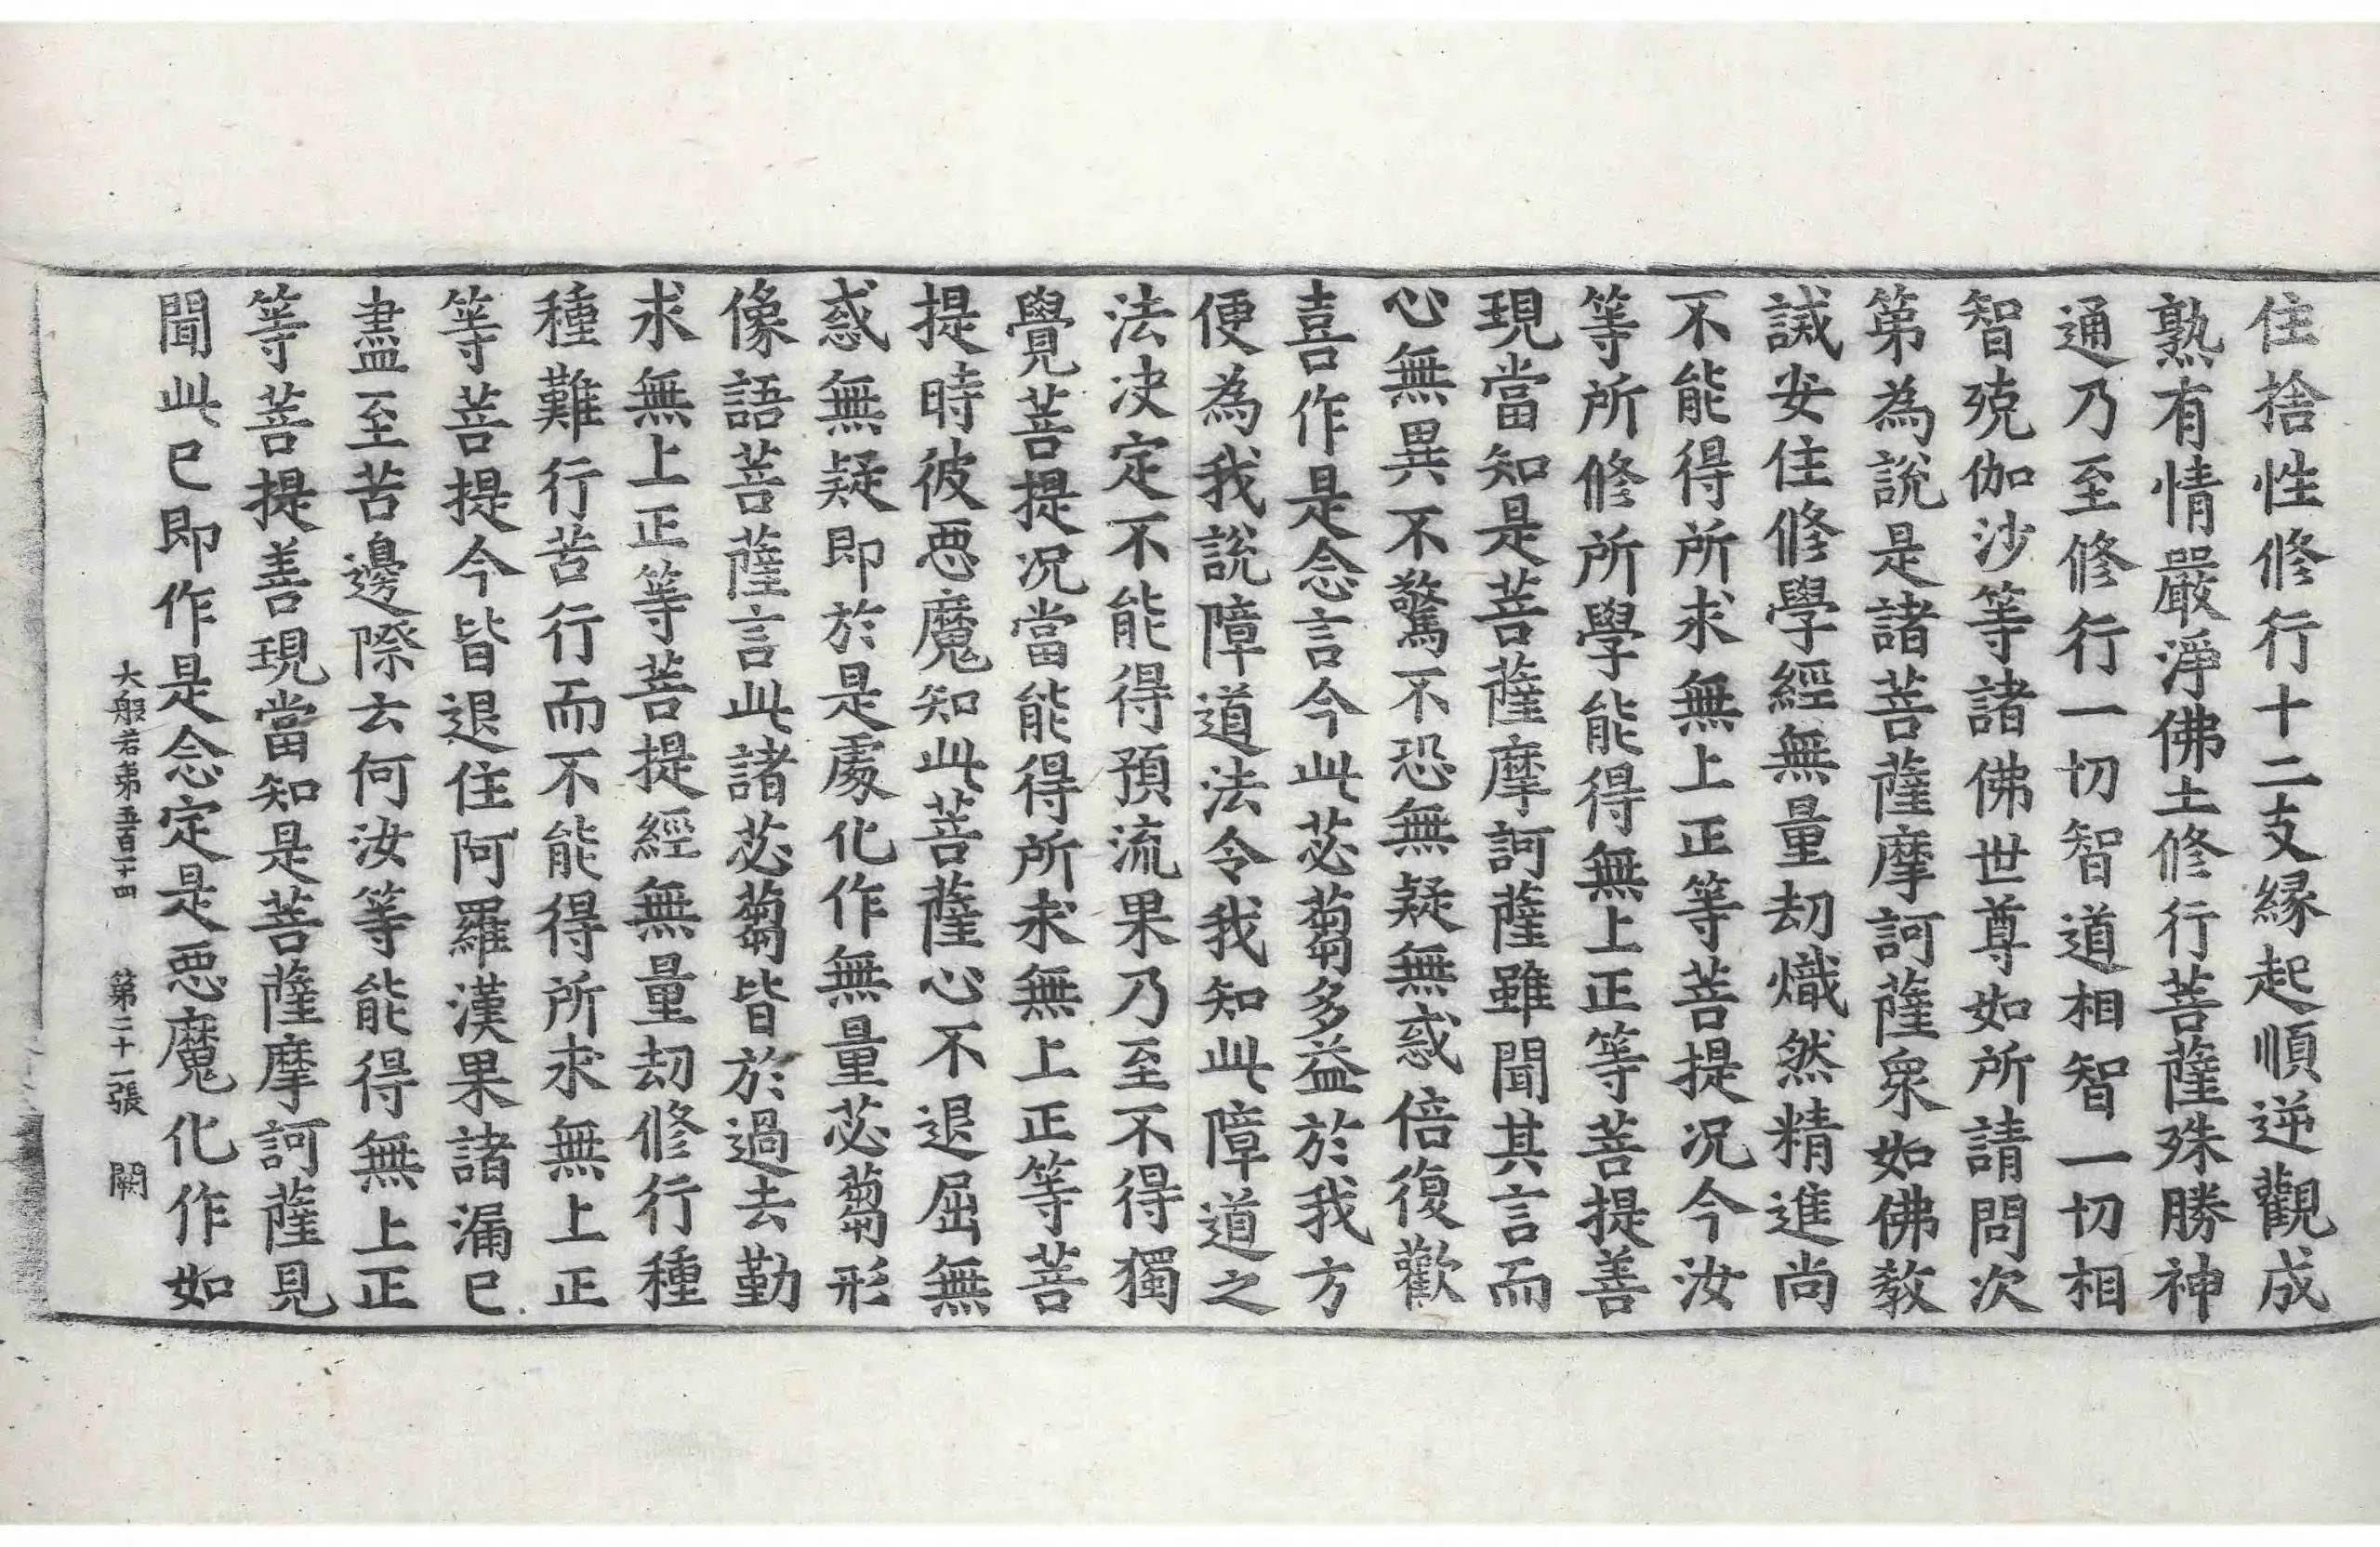 住捨性修行十二支緣起順逆觀成
熟有情嚴淨佛土修行菩薩殊勝神
通乃至修行一切智道相智一切相
智殑伽沙等諸佛世尊如所請問次
第為說是諸菩薩摩訶薩衆如佛教
誡安住修學經無量劫熾然精進尚
不能得所求無上正等菩提况今汝
等所修所學能得無上正等菩提善
現當知是菩薩摩訶薩雖聞其言而
心無異不驚不恐無疑無惑倍復歡
喜作是念言今此苾蒭多益於我方
便為我說障道法令我知此障道之
法决定不能得預流果乃至不得獨
覺菩提况當能得所求無上正等菩
提時彼惡魔知此菩薩心不退屈無
惑無疑即於是處化作無量苾蒭形
像語菩薩言此諸苾蒭皆於過去勤
求無上正等菩提經無量劫修行種
種難行苦行而不能得所求無上正
等菩提今皆退住阿羅漢果諸漏已
盡至苦邊際云何汝等能得無上正
等菩提善現當知是菩薩摩訶薩見
聞此已即作是念定是惡魔化作如
大般若第五百一十四 第二十一張 闕